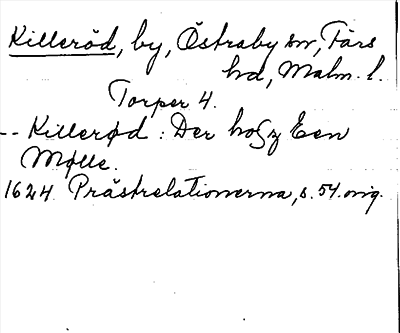 Killeröd, by, Östraby sn, Färs
hd, Malm. l.
Torper 4.
-- Killerød : Der hosz Een
Mølle.
1624 Prästrelationerna, s. 54. orig.